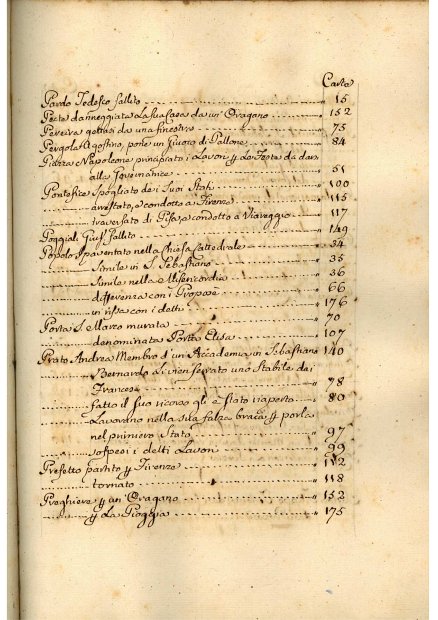 Carta
Pardo Tedesco fallito " 15
Peste danneggiata La sua Casa da un' Oragano " 152
Pereira gettasi da una finestra " 75
Pergola Agostino, pone un Giuoco di Pallone " 84
Piazza Napoleone principiati i Lavori p Le Feste da darsi
alla Governatrice " 51
Pontefice Spogliato dei Suoi Stati " 100
arrestato, e condotto a Firenze " 115
traversato di Pisa e condotto a Viareggio " 117
Poggiali Gius.e fallito " 149
Popolo Spaventato nella Chiesa Cattedrale " 34
Simile in S. Sebastiano " 35
Simile nella Misericordia " 36
differenza con i " 66
in rissa con i detti " 176
Porta S. Marco murata " 70
denominata Porta Elisa " 107
Prato Andrea Membro d'un Accademia in Sebastiano " 140
Bernardo Li vien serrato uno Stabile dai
Francesi " 78
fatto il suo ricorso gli è stato riaperto " 80
Lavorano nella sua falza braca p porla
nel primiero Stato " 97
sospesi i detti Lavori " 99
Prefetto partito p Firenze " 112
tornato " 118
Preghiere p un' Oragano " 152
p La Pioggia " 175